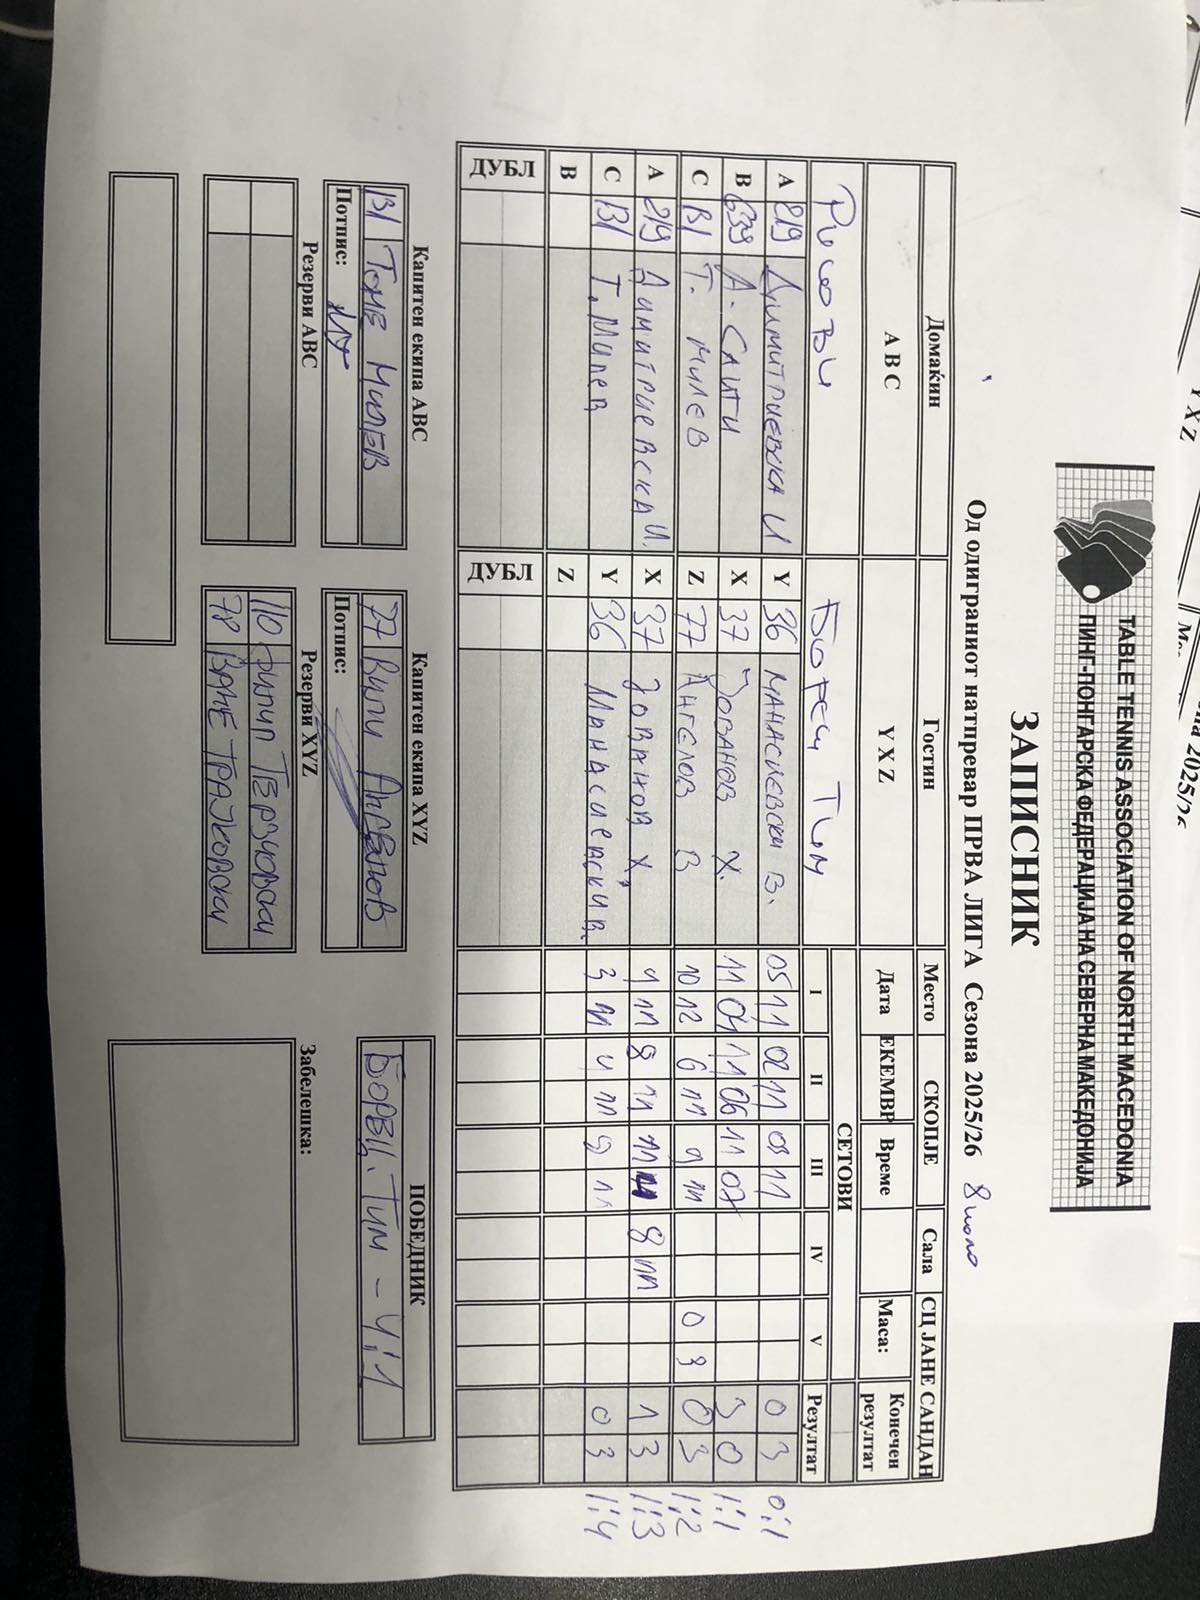 TABLE TENNIS ASSOCIATION OF NORTH MACEDONIA
ПИНГ-ПОНГАРСКА ФЕДЕРАЦИЈА НА СЕВЕРНА МАКЕДОНИЈА
ЗАПИСНИК
Од одиграниот натпревар ПРВА ЛИГА Сезона 2025/26 8 коло
Домаќин Гостин Место СКОПЈЕ Сала СЦ ЈАНЕ САНДАН
A B C Y X Z Дата ЕКЕМВР Време Маса: Конечен резултат
Борец Тим СЕТОВИ
I II III IV V Резултат
A 219 Димитриевска И Y 36 Манасиевски В. 05 11 02 11 03 11 0 3 0:1
B 639 А. Саити X 37 Јованов Х. 11 04 11 06 11 07 3 0 1:1
C B1 Т. Милев Z 77 Ангелов В 10 12 6 11 9 11 0 3 0 3 1:2
A 219 Димитриевска И. X 37 Јованов Х. 4 11 8 11 11 8 11 1 3 1:3
C B1 Т. Милев Y 36 Манасиевски В. 3 11 4 11 9 11 0 3 1:4
B Z
ДУБЛ ДУБЛ
Капитен екипа ABC Капитен екипа XYZ ПОБЕДНИК
B1 Томе Милев 77 Вили Ангелов Борец Тим - 4:1
Потпис: Потпис:
Резерви ABC Резерви XYZ Забелешка:
110 Филип Терзиовски
78 Ване Трајковски